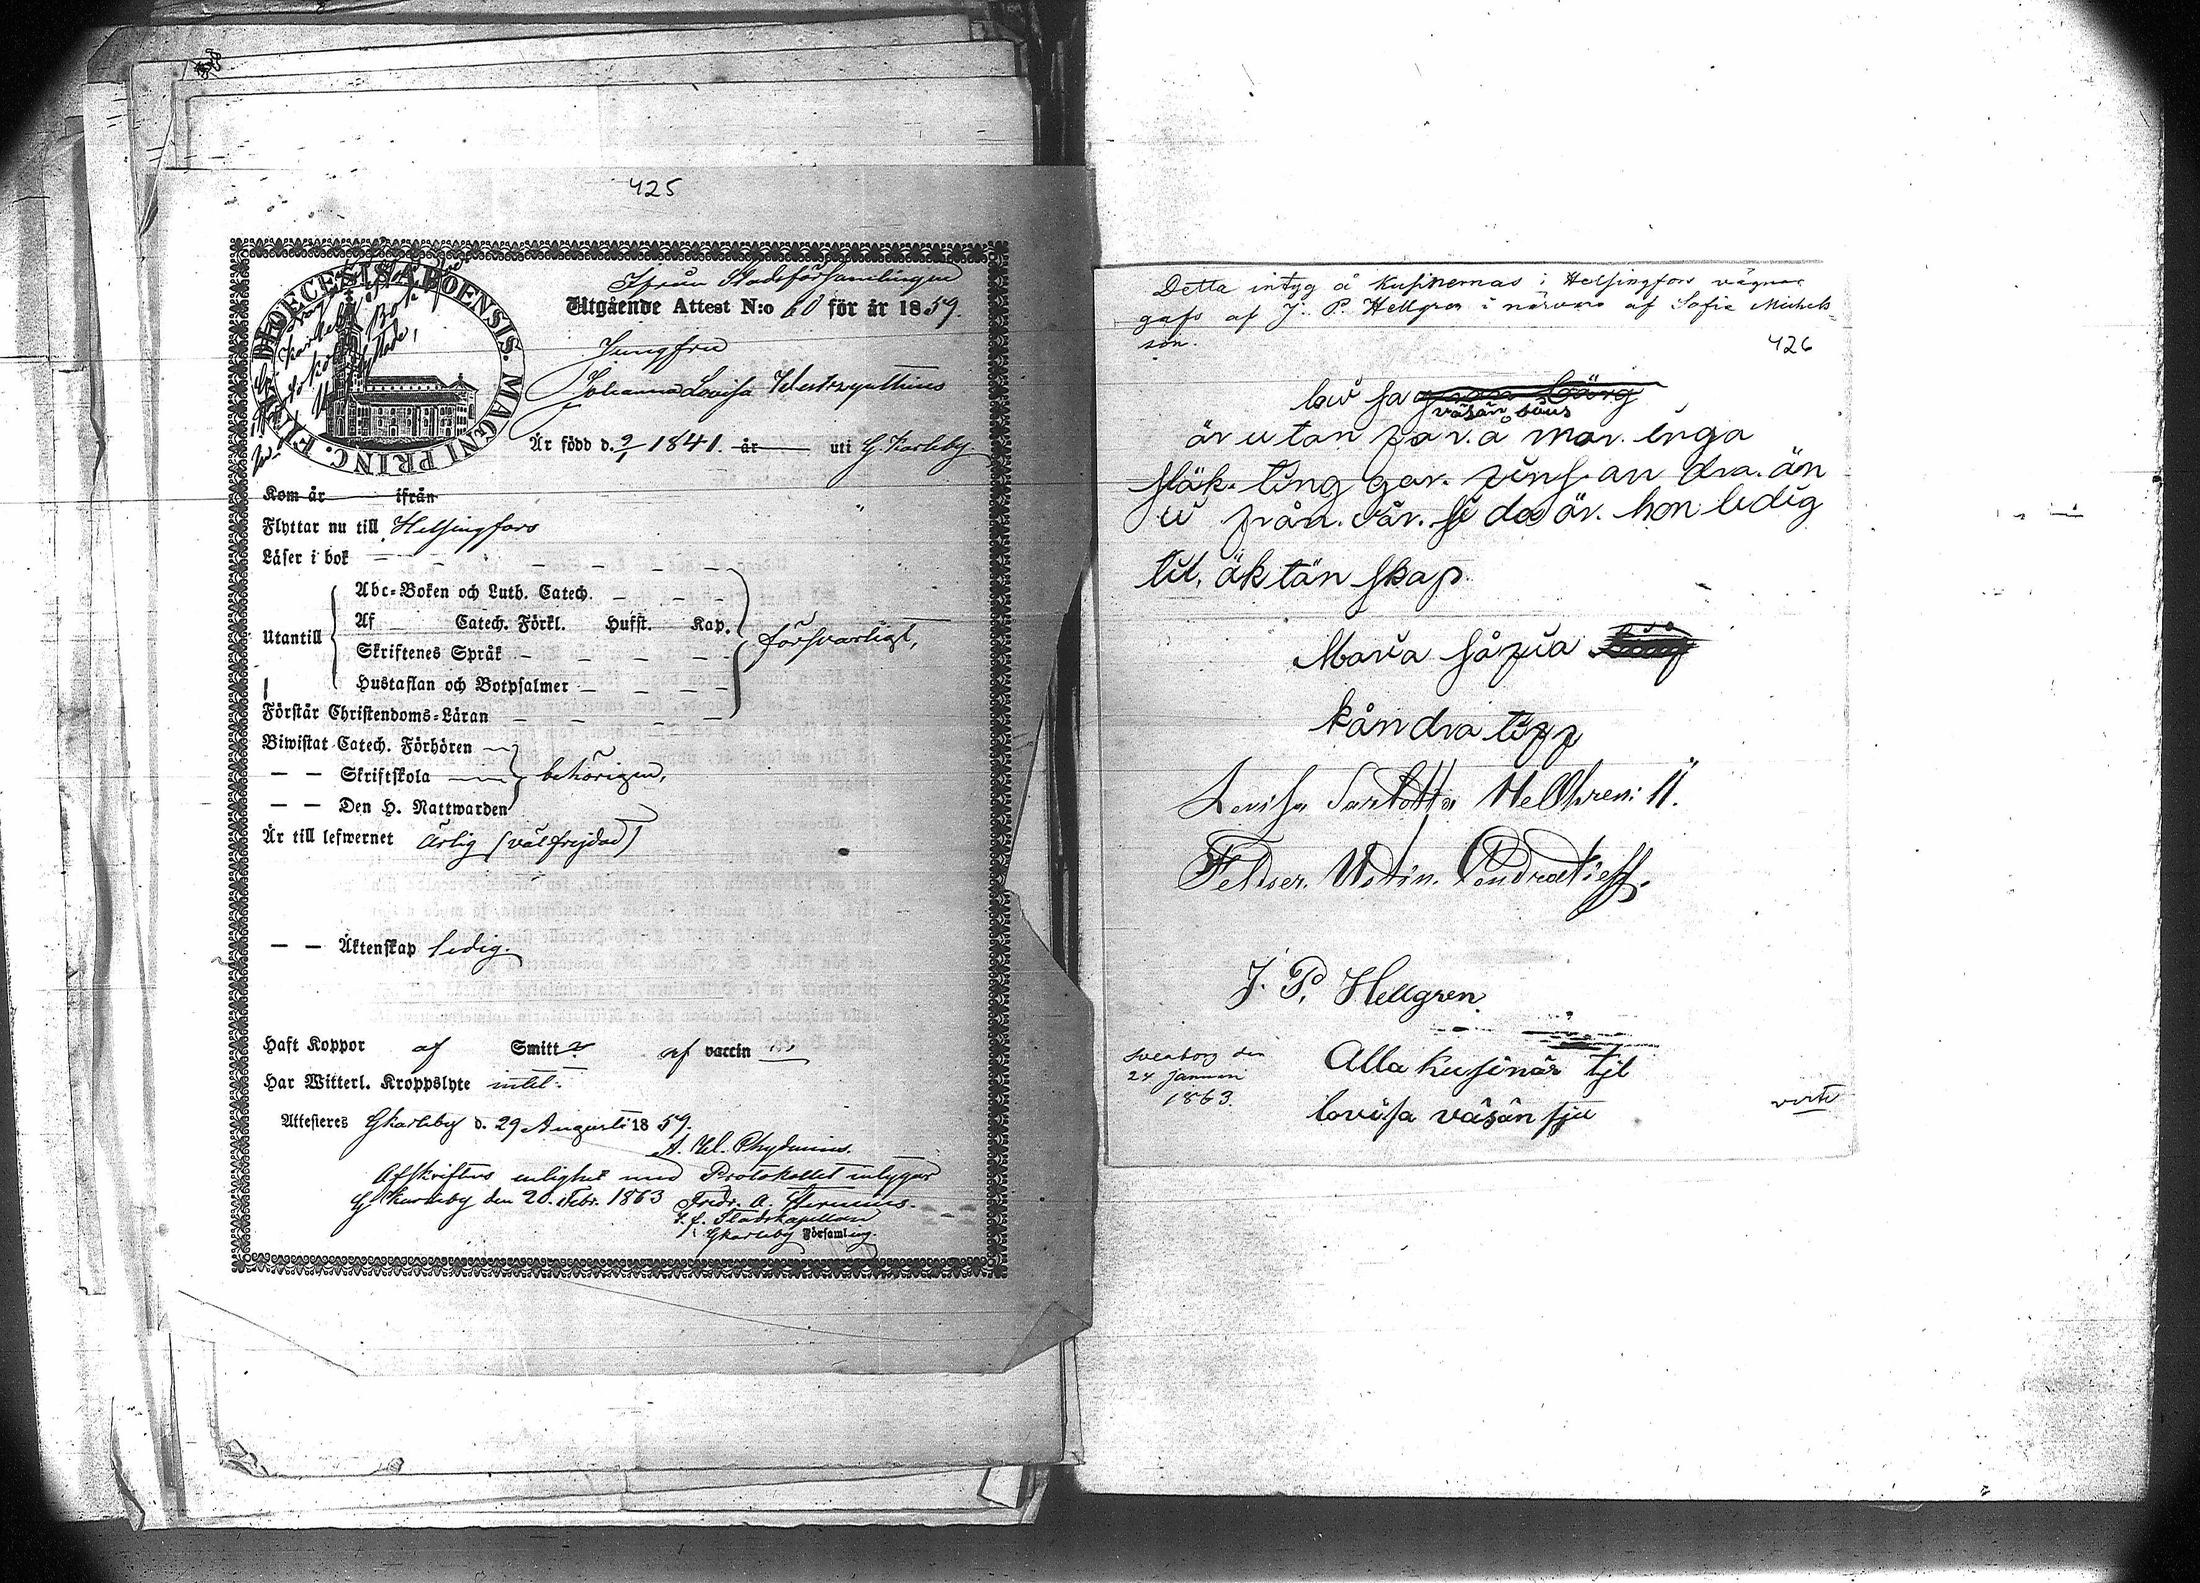 425
DIOECESIS ABOENSIS. MAGNI PRINC. FINL.
Ifrån Stadsförsamlingen
Utgående Attest N:o 60 för år 1859.
Jungfru
Johanna Lovisa Westzynthius
Är född d. 9/1 1841. år uti G. Karleby
Kom år ifrån
Flyttar nu till Helsingfors
Läser i bok
Utantill
Abc-Boken och Luth. Catech.
Af Catech. Förkl. Husst. Kap.
Skriftenes Språk
Hustaflan och Botpsalmer
Förstår Christendoms-Läran
försvarligt,
Biwistat Catech. Förhören
— — Skriftskola
— — Den H. Nattwarden
behörigen,
Är till lefwernet ärlig (välfrejdad)
— — Äktenskap ledig.
Haft Koppor af Smitt af vaccin
Har Witterl. Kroppslyte intet.
Attesteres Gkarleby d. 29 Augusti 1859.
A. W. Chydenius.
Afskriftens enlighet med Protokollet intygar
G. Karleby den 20. Febr. 1863 Fredr. A.
Stadskapellan
Gkarleby Församling.
Detta intyg å Kusinernas i Helsingfors vägnar
gafs af J. P. Hellgren i närvaro af Sofia Michels-
son.
426
är utan far. å mor. inga
släk. ting gar. fins an dra. än
vi från. vår. si da är. hon ledig
til, äk tän skap
Maria såfia
kåndra tiff
Lovisa Sarlotta Hellgren
Feltser. Ustin. Condratieff.
J. P. Hellgren
Sveaborg den
24 Januari
1863.
Alla kusinär til
lovisa väsän sju
verte